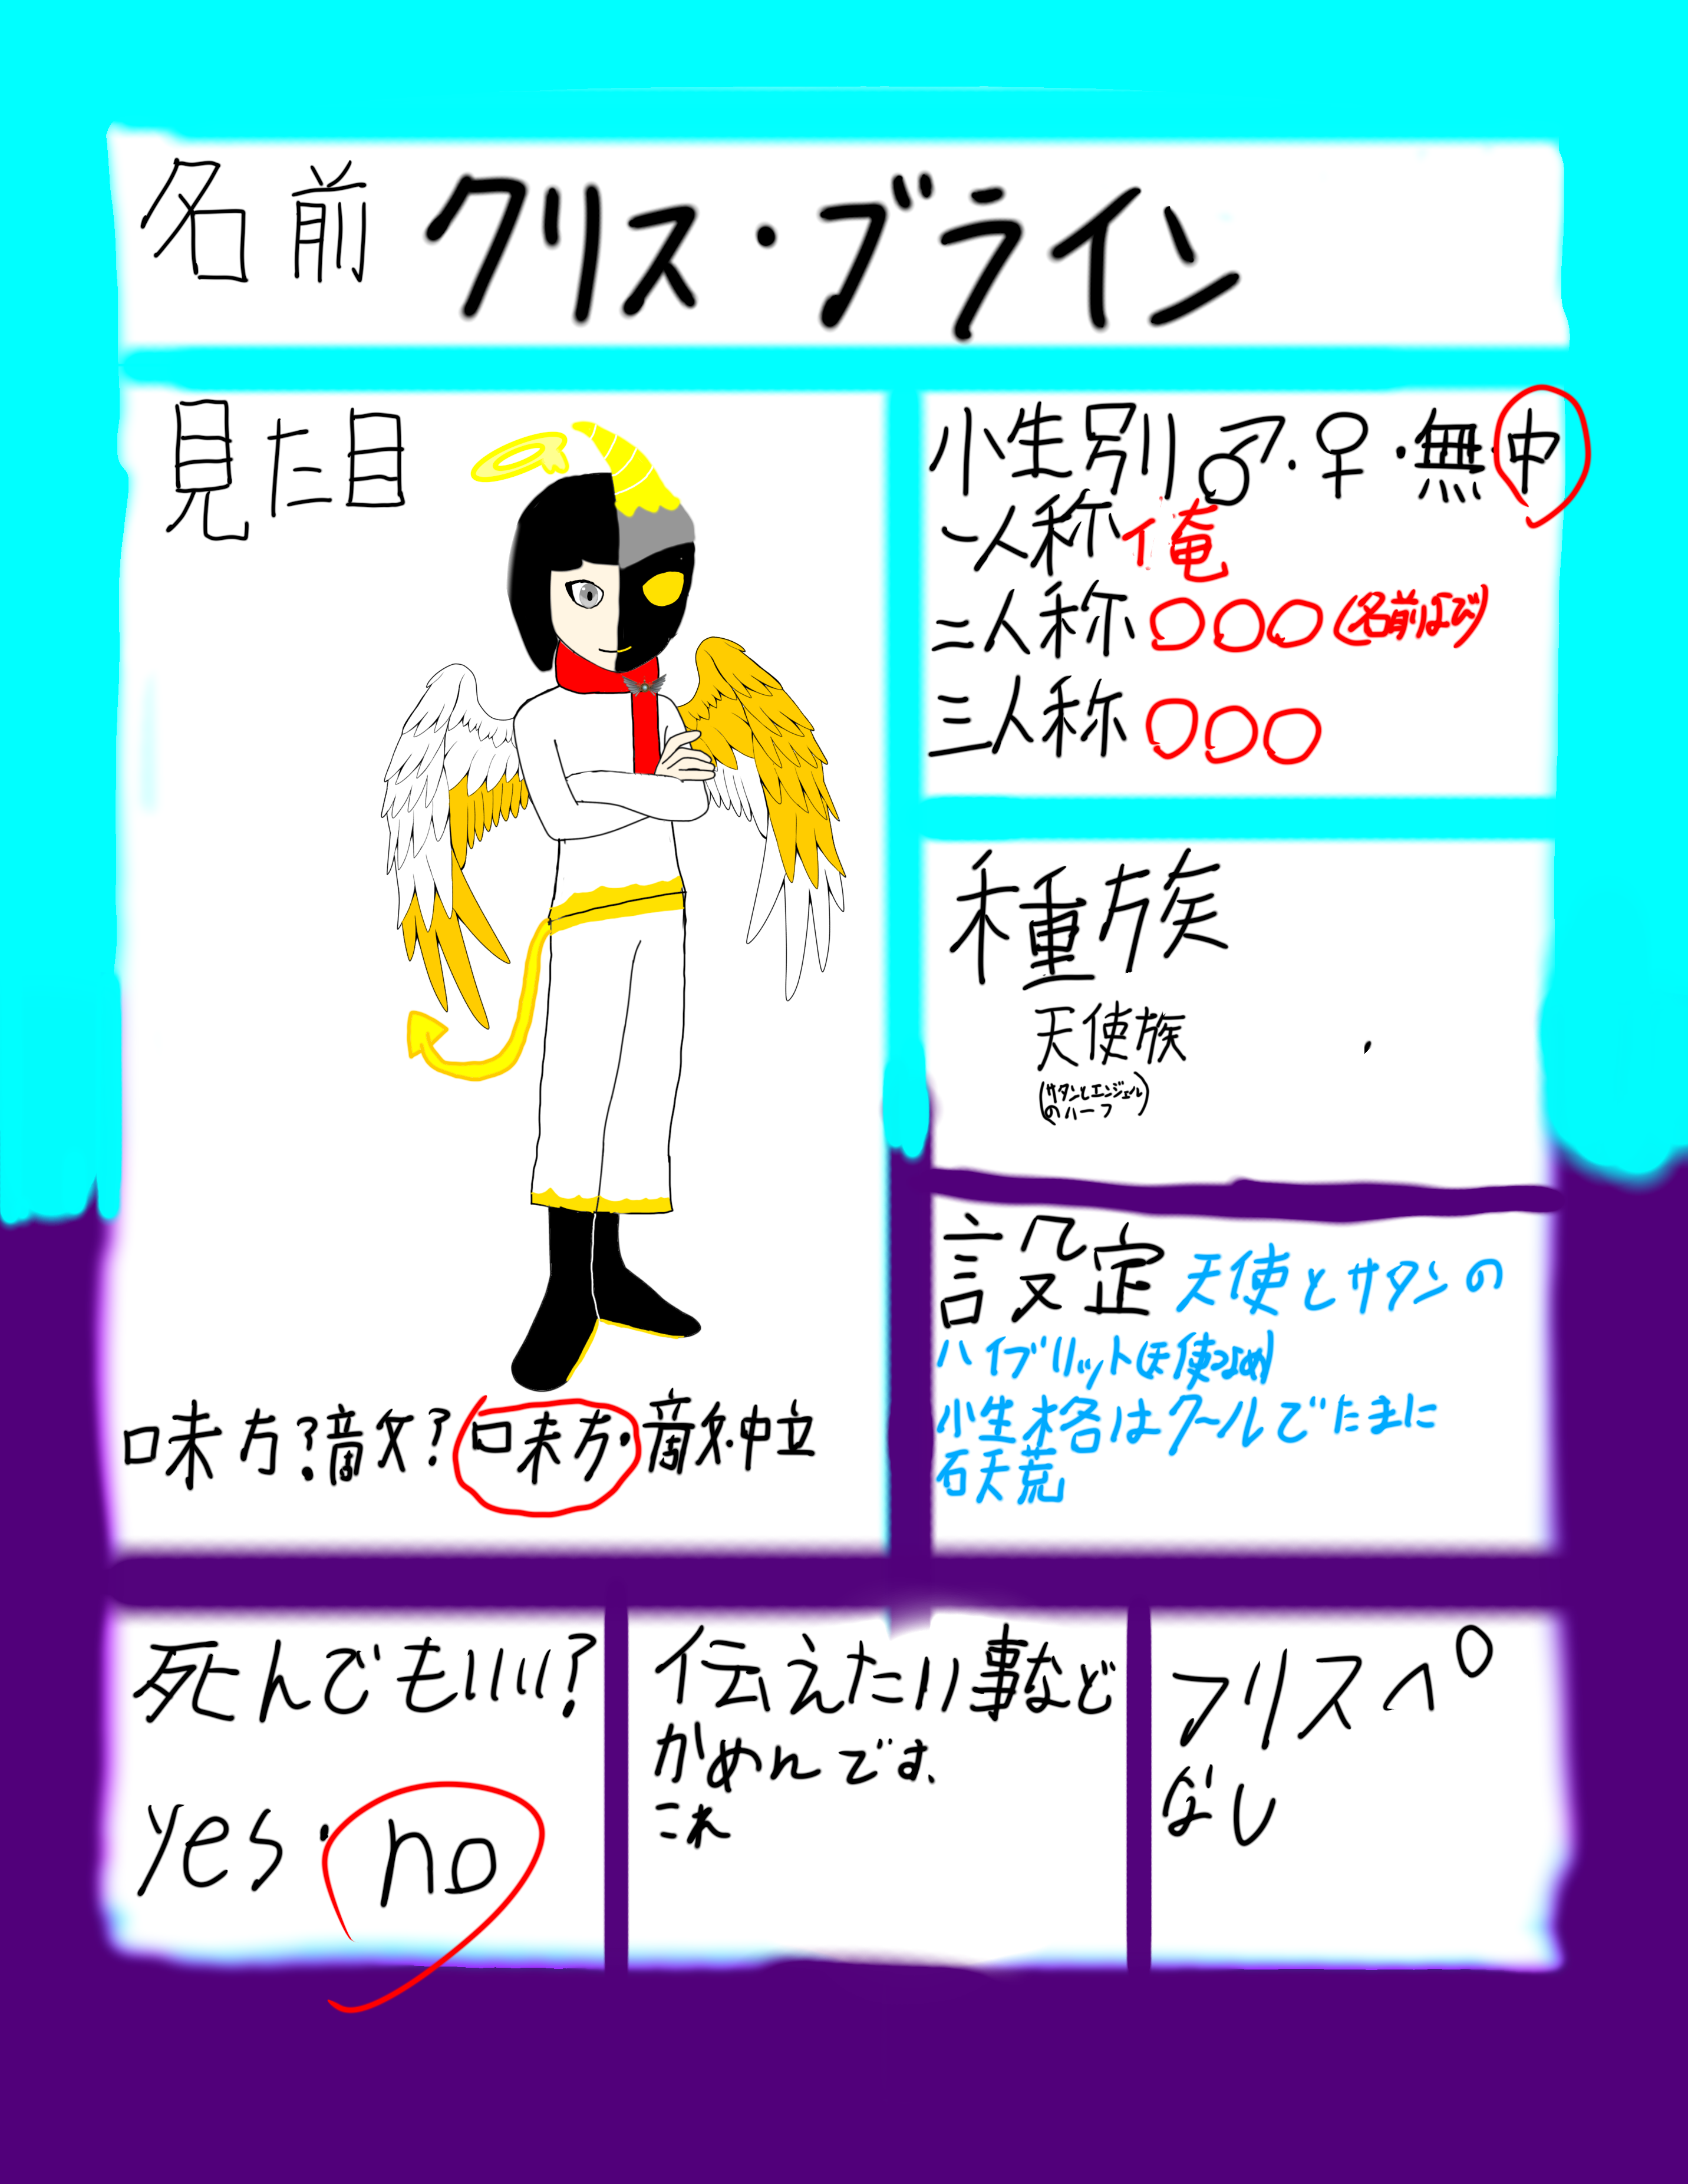 名前 クリス・ブライン
見た目
性別 ♂・♀・無・中
一人称 俺
二人称 〇〇〇(名前よび)
三人称 〇〇〇
種族
天使族
(サタンとエンジェル
のハーフ)
設定 天使とサタンの
ハイブリット(天使つよめ)
性格はクールでたまに
破天荒
味方?敵?味方・敵・中立
死んでもいい?
yes・no
伝えたい事など
かめんです、
これ
フリスペ
なし